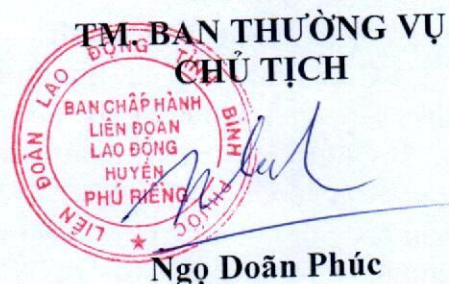 TM. BAN THƯỜNG VỤ
CHỦ TỊCH
LIÊN ĐOÀN LAO ĐỘNG TỈNH BÌNH PHƯỚC
BAN CHẤP HÀNH
LIÊN ĐOÀN
LAO ĐỘNG
HUYỆN
PHÚ RIỀNG
Ngọ Doãn Phúc